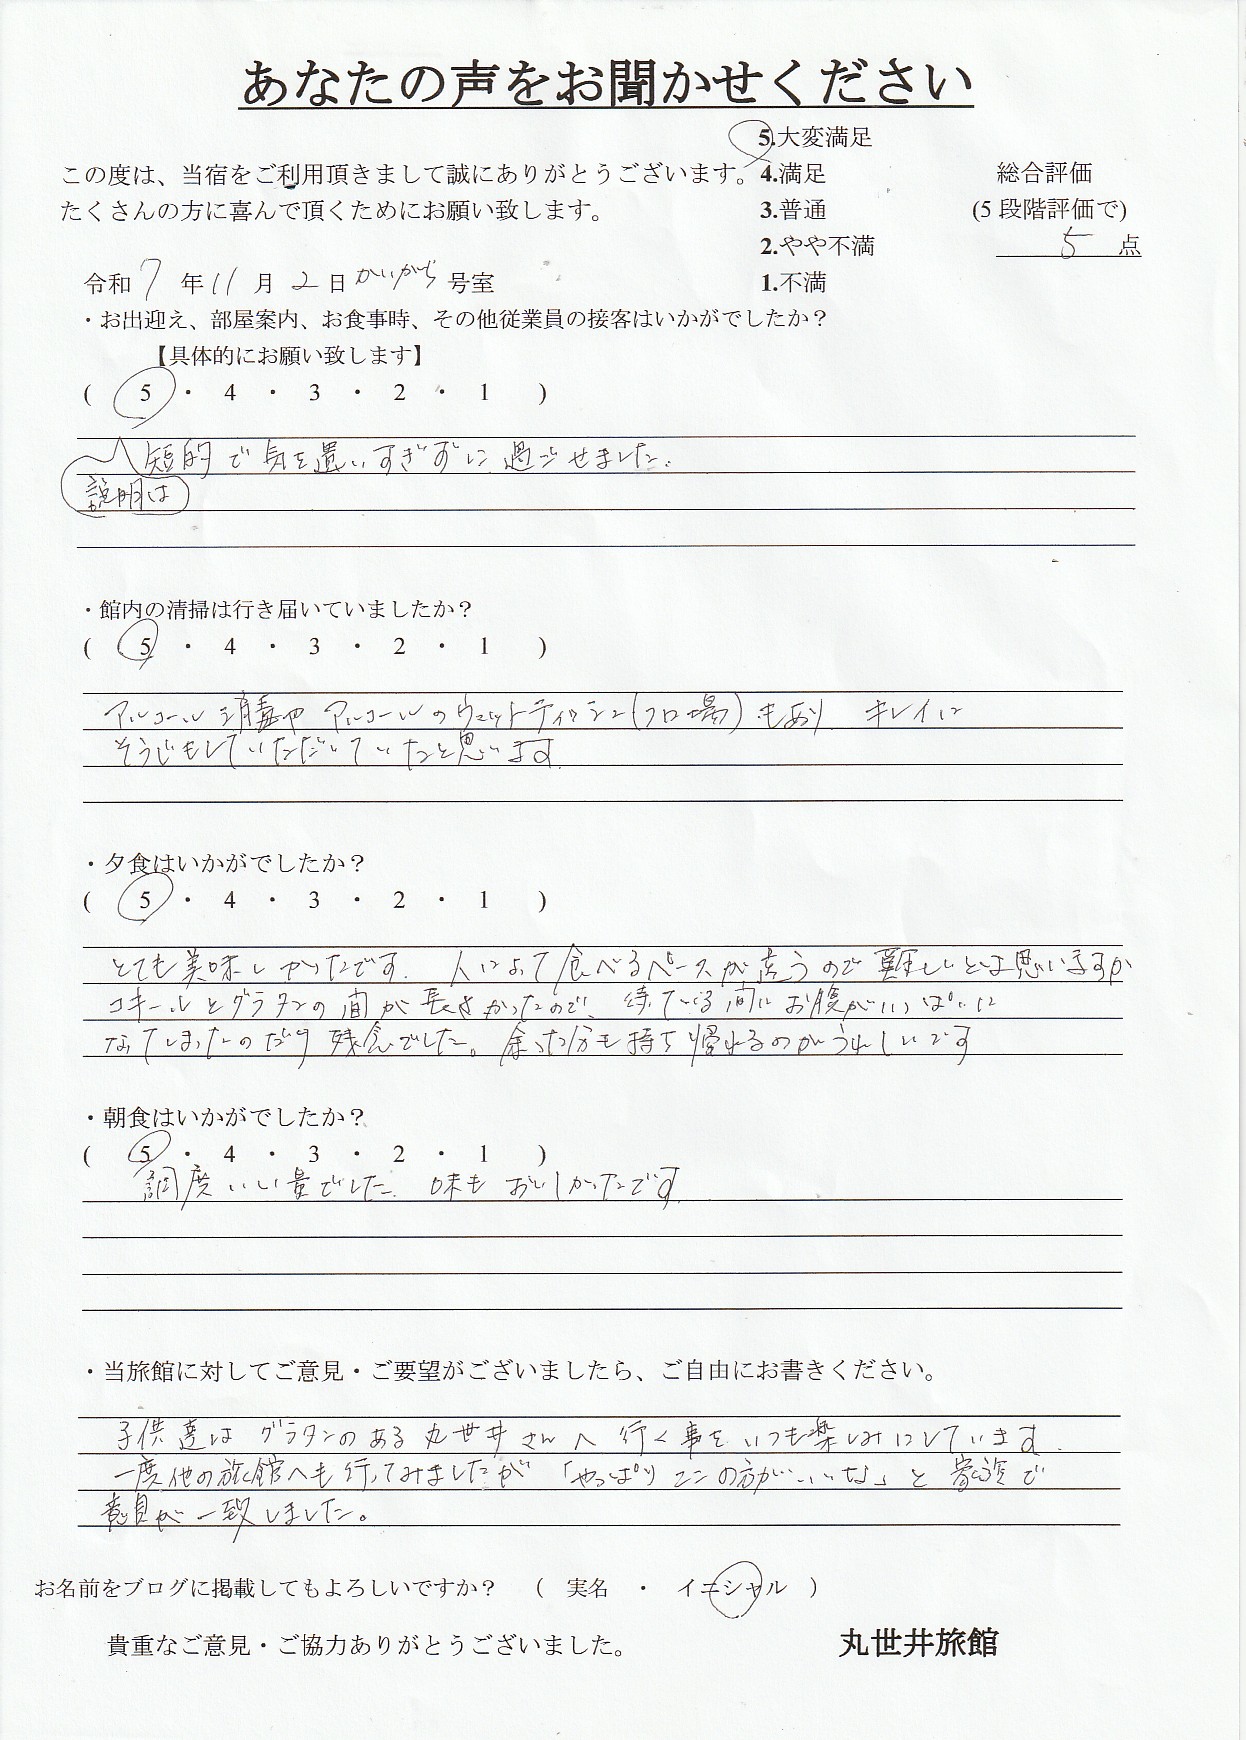 あなたの声をお聞かせください
5.大変満足
この度は、当宿をご利用頂きまして誠にありがとうございます。 4.満足 総合評価
たくさんの方に喜んで頂くためにお願い致します。 3.普通 (5段階評価で)
2.やや不満 5点
令和7年11月2日 かいがら号室 1.不満
・お出迎え、部屋案内、お食事時、その他従業員の接客はいかがでしたか?
【具体的にお願い致します】
( 5 ・ 4 ・ 3 ・ 2 ・ 1 )
短的で気を遣いすぎずに過ごせました。
説明は
・館内の清掃は行き届いていましたか?
( 5 ・ 4 ・ 3 ・ 2 ・ 1 )
アルコール消毒や アルコールのウェットティッシュ(フロ場)もあり キレイに
そうじもしていただいていたと思います
・夕食はいかがでしたか?
( 5 ・ 4 ・ 3 ・ 2 ・ 1 )
とても美味しかったです。人によって食べるペースが違うので難しいとは思いますが
コキールとグラタンの間が長さかったので、待っている間にお腹がいっぱいに
なってしまったのだけ残念でした。余った分も持ち帰れるのがうれしいです
・朝食はいかがでしたか?
( 5 ・ 4 ・ 3 ・ 2 ・ 1 )
調度いい量でした。味もおいしかったです
・当旅館に対してご意見・ご要望がございましたら、ご自由にお書きください。
子供達はグラタンのある丸世井さんへ行く事をいつも楽しみにしています。
一度他の旅館へも行ってみましたが「やっぱりココの方がいいな」と家族で
意見が一致しました。
お名前をブログに掲載してもよろしいですか? ( 実名 ・ イニシャル )
貴重なご意見・ご協力ありがとうございました。 丸世井旅館